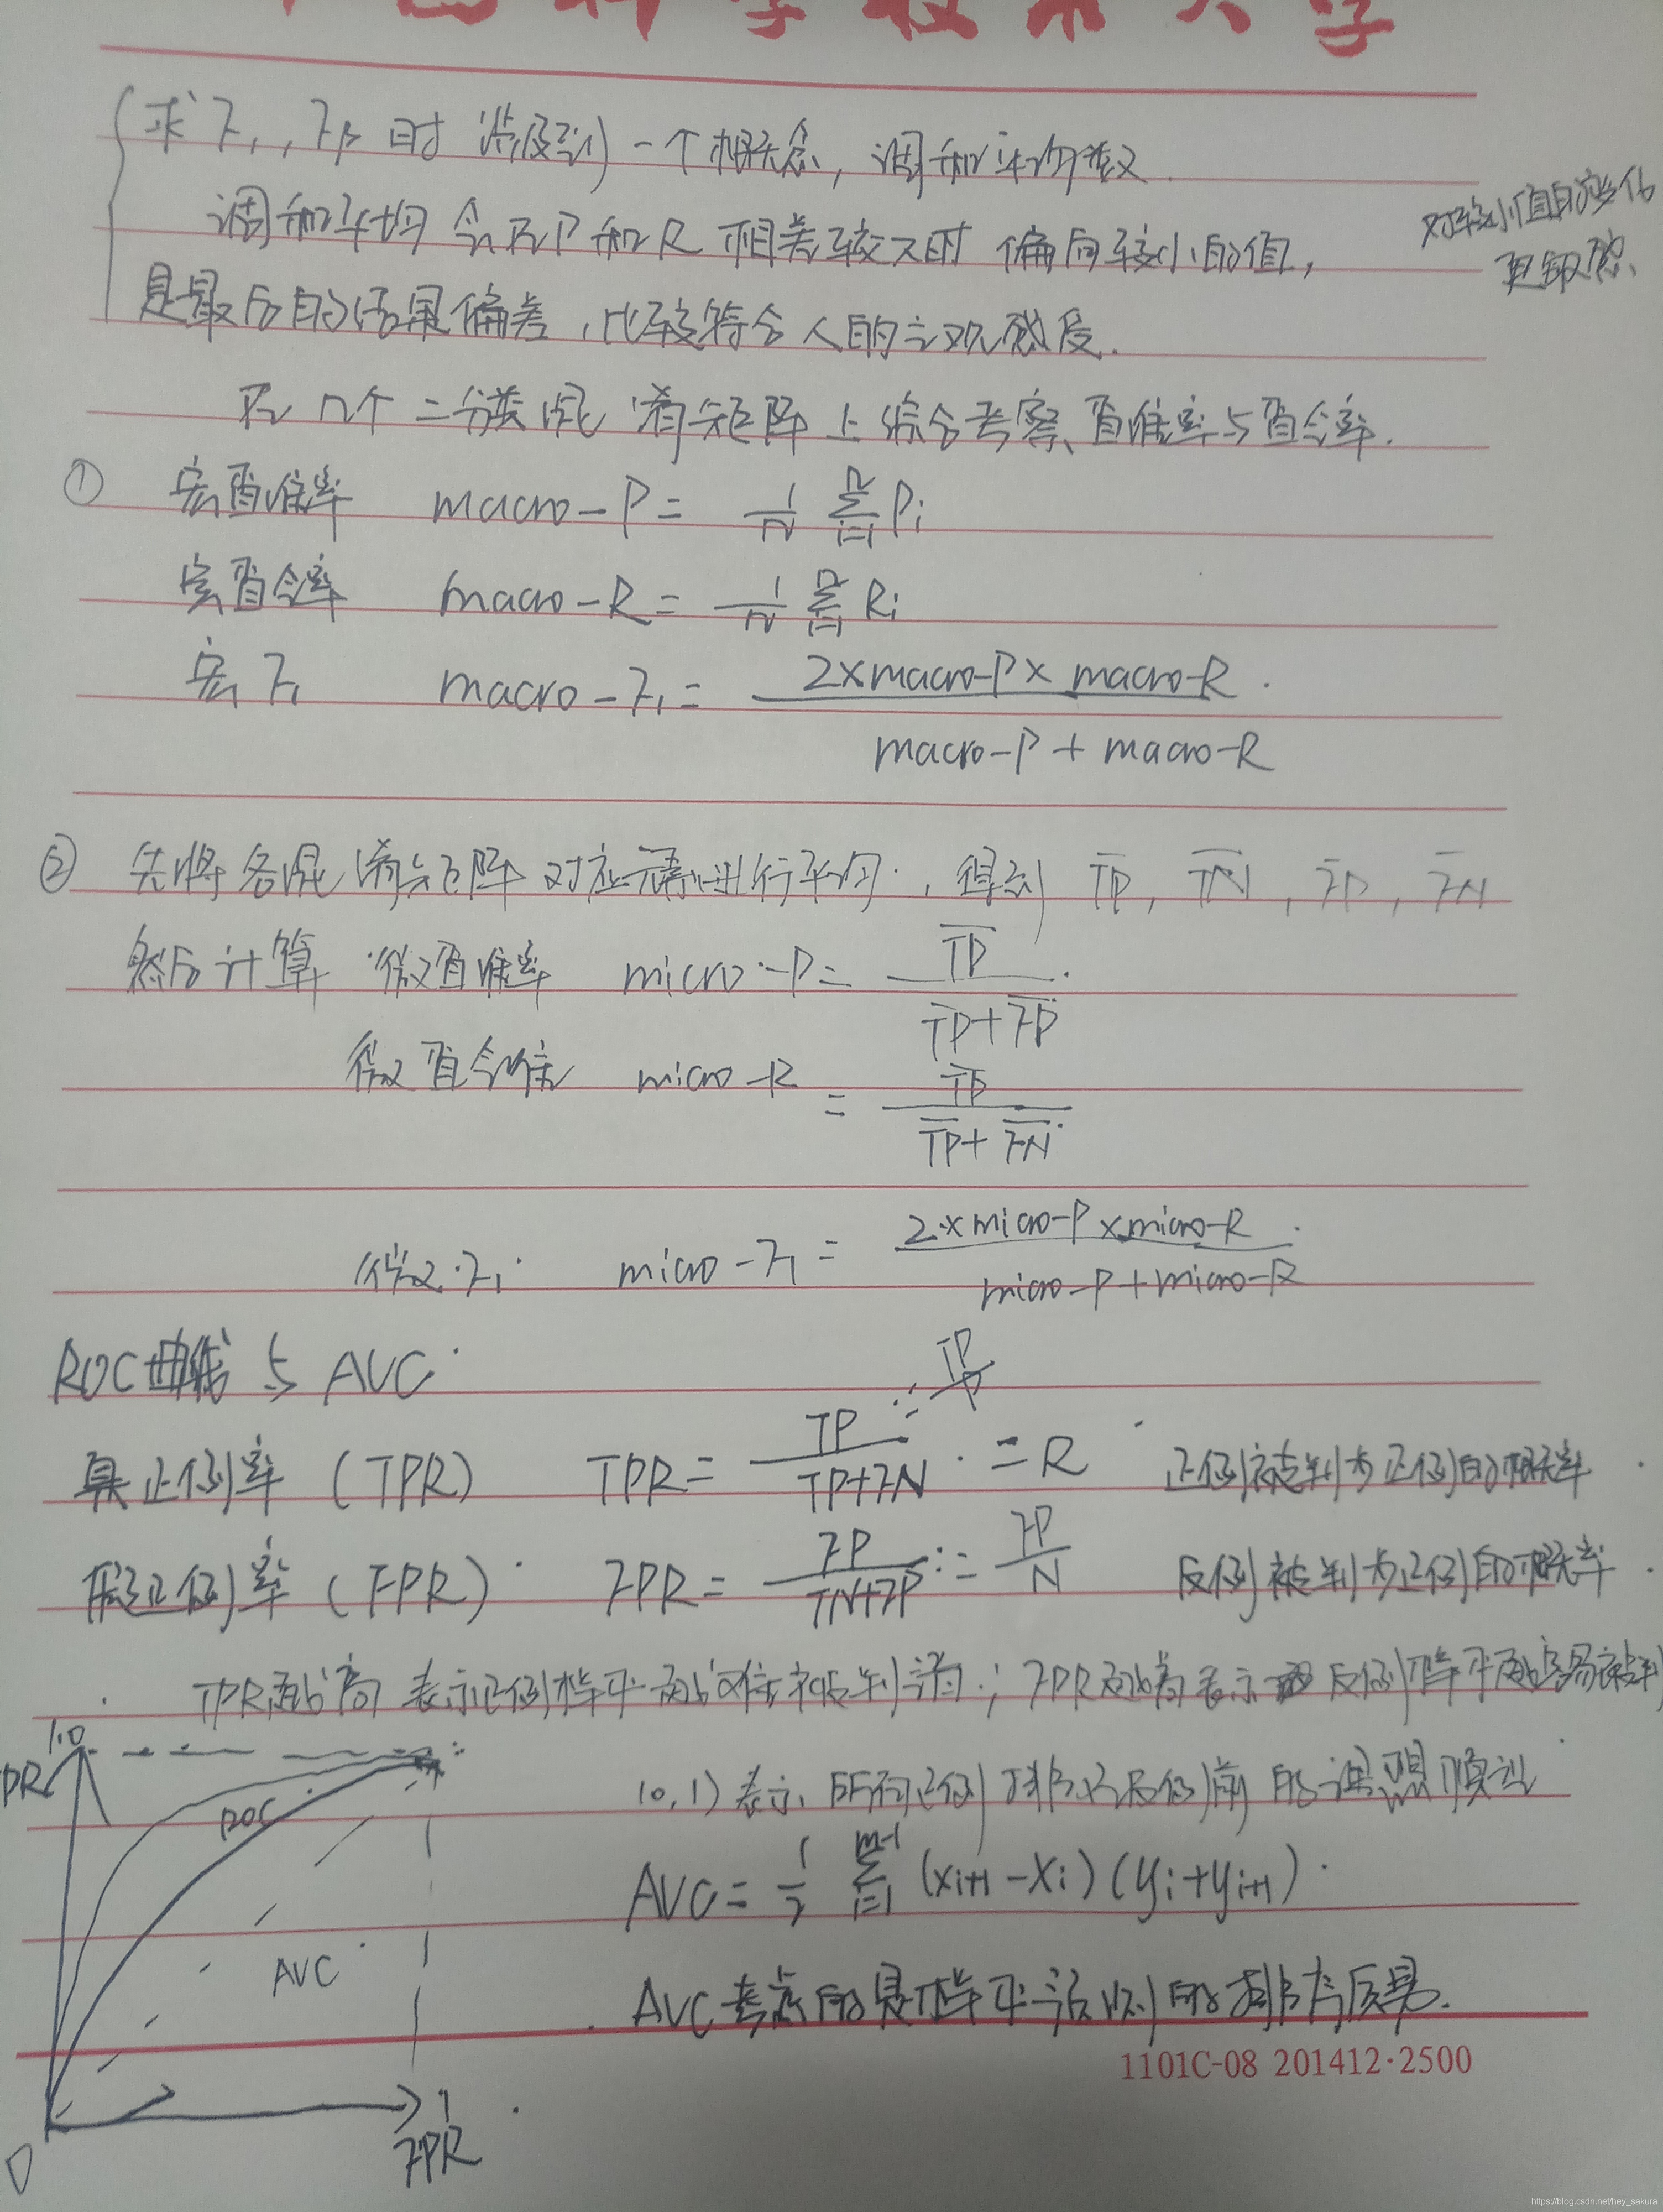 科学技术大学
求F₁,Fβ时涉及到一个概念,调和平均数
调和平均会在P和R相差较大时偏向较小的值,
对较小值的变化
更敏感
是最后的结果偏差,比较符合人的主观感受.
在n个二分类混淆矩阵上综合考察查准率与查全率.
① 宏查准率 macro-P = 1/n Σ(i=1..n) Pi
宏查全率 macro-R = 1/n Σ(i=1..n) Ri
宏F₁ macro-F₁ = 2×macro-P×macro-R / macro-P+macro-R
② 先将各混淆矩阵对应元素进行平均,得到 T̅P̅, T̅N̅, F̅P̅, F̅N̅
然后计算 微查准率 micro-P = T̅P̅ / T̅P̅+F̅P̅
微查全率 micro-R = T̅P̅ / T̅P̅+F̅N̅
微F₁ micro-F₁ = 2×micro-P×micro-R / micro-P+micro-R
ROC曲线与AUC
真正例率(TPR) TPR = TP / TP+FN = TP/P = R 正例被判为正例的概率.
假正例率(FPR) FPR = FP / TN+FP = FP/N 反例被判为正例的概率.
TPR越高表示正例样本越难被判错; FPR越高表示反例样本越容易被判
1.0
PR
ROC
AUC
0
1
FPR
(0,1)表示所有正例排在反例前的理想顺序
AUC = 1/2 Σ(i=1..m-1) (xi+1 - xi)(yi+yi+1)
AUC考虑的是样本预测的排序质量.
1101C-08 201412·2500
https://blog.csdn.net/hey_sakura